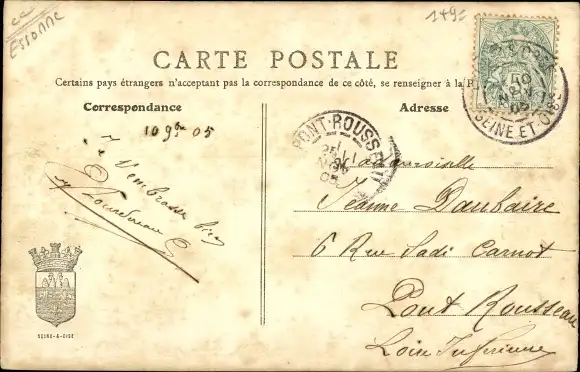 Essonne
CARTE POSTALE
Certains pays étrangers n'acceptant pas la correspondance de ce côté, se renseigner à la
Correspondance
Adresse
10 9bre 05
Je
t'embrasse bien
PONT-ROUSSEAU
SEINE ET OISE
Mademoiselle
Jeanne Daubaire
6 Rue Sadi Carnot
Pont Rousseau
Loire Inférieure
SEINE-&-OISE